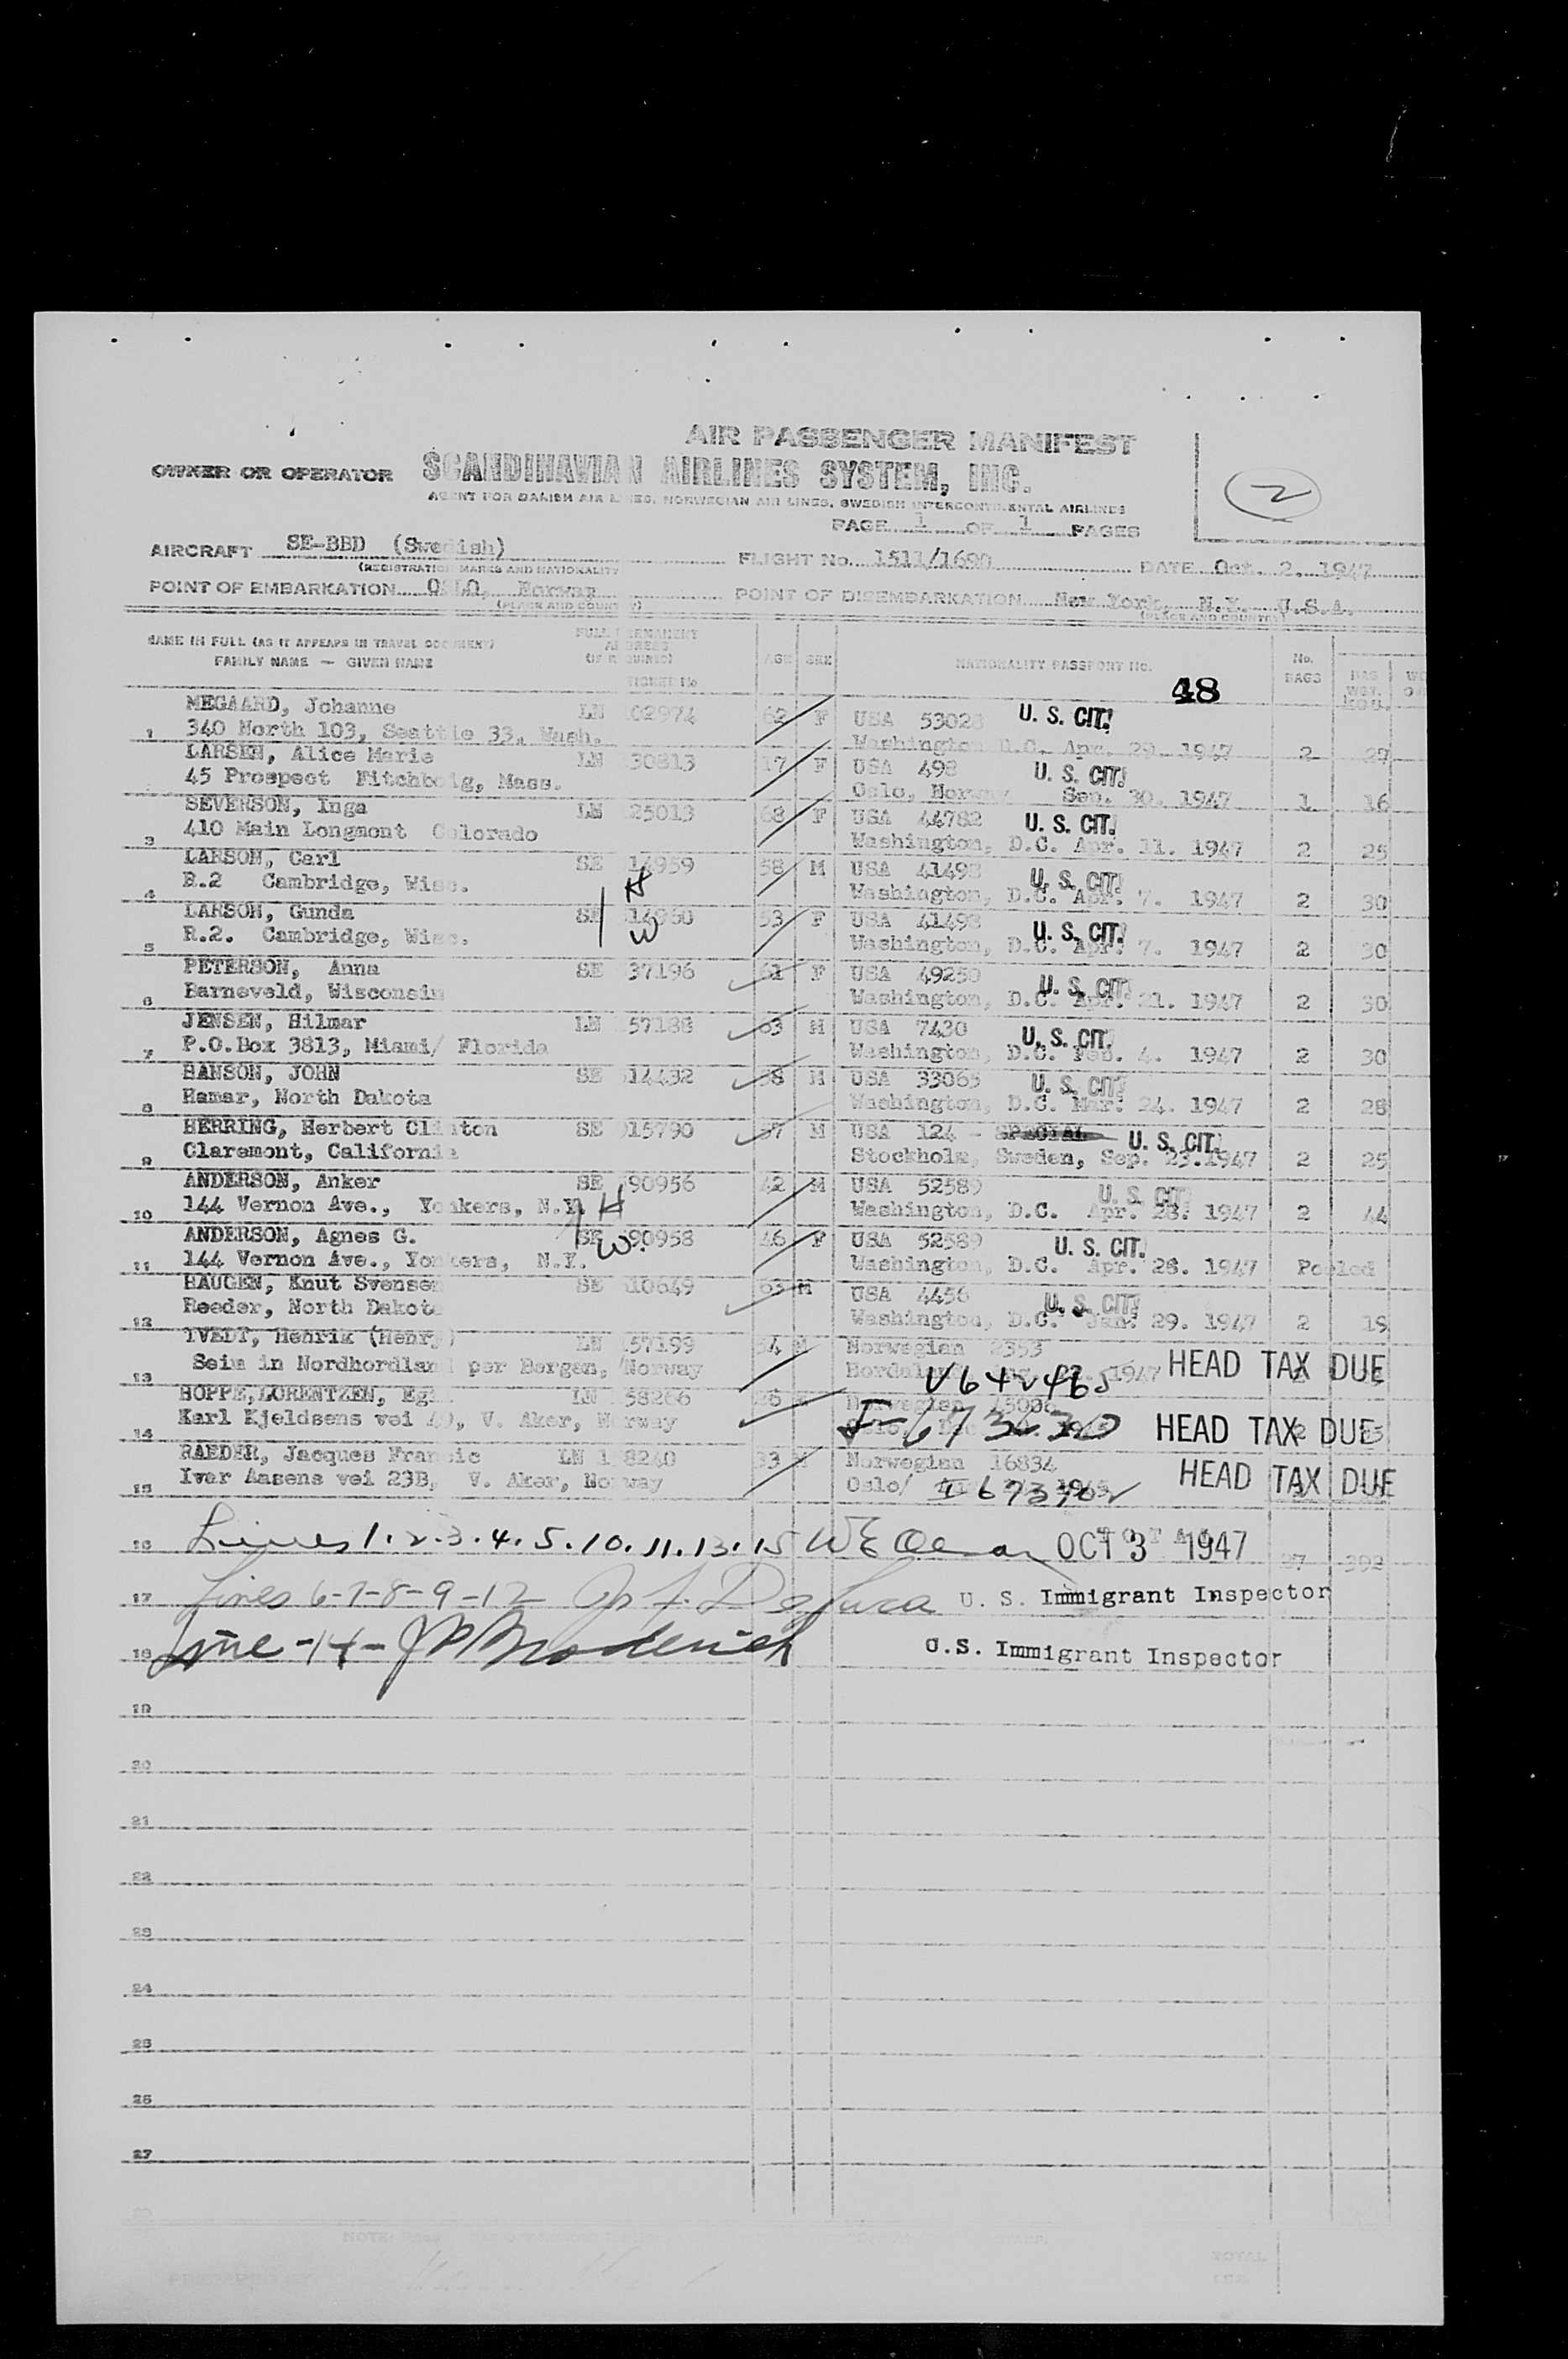 AIR PASSENGER MANIFEST
OWNER OR OPERATOR SCANDINAVIAN AIRLINES SYSTEM, INC.
AGENT FOR DANISH AIR LINES, NORWEGIAN AIR LINES, SWEDISH INTERCONTINENTAL AIRLINES
2
PAGE 1 OF 1 PAGES
AIRCRAFT SE-BBD (Swedish) FLIGHT No. 1511/1690 DATE Oct. 2, 1947
(REGISTRATION MARKS AND NATIONALITY
POINT OF EMBARKATION OSLO, Norway POINT OF DISEMBARKATION New York, N.Y. U.S.A.
(PLACE AND COUNTRY) (PLACE AND COUNTRY)
NAME IN FULL (AS IT APPEARS IN TRAVEL DOCUMENT) FULL PERMANENT ADDRESS (IF REQUIRED) AGE SEX NATIONALITY PASSPORT No. No. BAGS BAG WGT.
FAMILY NAME — GIVEN NAME TICKET No
48
MEGAARD, Johanne LN 02974 62 F USA 5302 U. S. CIT.
1 340 North 103, Seattle 33, Wash. Washington D.C. Apr. 29. 1947 2 27
LARSEN, Alice Marie LN 30813 17 F USA 498 U. S. CIT.
45 Prospect Fitchboig, Mass. Oslo, Norway Sep. 30. 1947 1 16
SEVERSON, Inga LN 25013 68 F USA 44782 U. S. CIT.
3 410 Main Longmont Colorado Washington, D.C. Apr. 11. 1947 2 25
LARSON, Carl SE 14959 58 M USA 41498 U. S. CIT.
4 R.2 Cambridge, Wisc. H Washington, D.C. Apr. 7. 1947 2 30
LARSON, Gunda SE 14960 53 F USA 41498 U. S. CIT.
5 R.2. Cambridge, Wisc. W Washington, D.C. Apr. 7. 1947 2 30
PETERSON, Anna SE 37196 61 F USA 49250 U. S. CIT.
6 Barneveld, Wisconsin Washington, D.C. Apr. 21. 1947 2 30
JENSEN, Hilmar LN 57188 63 M USA 7430 U. S. CIT.
7 P.O.Box 3813, Miami/ Florida Washington, D.C. Feb. 4. 1947 2 30
HANSON, JOHN SE 14432 58 M USA 33065 U. S. CIT.
8 Hamar, North Dakota Washington, D.C. Mar. 24. 1947 2 28
HERRING, Herbert Clinton SE 15790 57 M USA 124 - SPECIAL U. S. CIT.
9 Claremont, California Stockholm, Sweden, Sep. 23.1947 2 25
ANDERSON, Anker SE 90956 42 M USA 52589 U. S. CIT.
10 144 Vernon Ave., Yonkers, N.Y. H Washington, D.C. Apr. 28. 1947 2 44
ANDERSON, Agnes G. SE 90958 46 F USA 52589 U. S. CIT.
11 144 Vernon Ave., Yonkers, N.Y. W. Washington, D.C. Apr. 28. 1947 Pooled
HAUGEN, Knut Svensen SE 10649 63 M USA 4456 U. S. CIT.
12 Reeder, North Dakota Washington, D.C. Jan. 29. 1947 2 19
TVEDT, Henrik (Henry) LN 57199 54 M Norwegian 2353
13 Seim in Nordhordland per Bergen, Norway 1947 V642465 HEAD TAX DUE
HOPPE, LORENTZEN, Egil LN 58266 26 Norwegian 45006
14 Karl Kjeldsens vei 40, V. Aker, Norway I-673630 HEAD TAX DUE
RAEDER, Jacques Francic LN 1 8240 33 Norwegian 16834
15 Ivar Aasens vei 23B, V. Aker, Norway Oslo/ HEAD TAX DUE
16 Lines 1.2.3.4.5.10.11.13.15 OCT 3 1947 392
17 Lines 6-7-8-9-12 U. S. Immigrant Inspector
18 Line -14- U.S. Immigrant Inspector
19
20
21
22
23
24
25
26
27
TOTAL